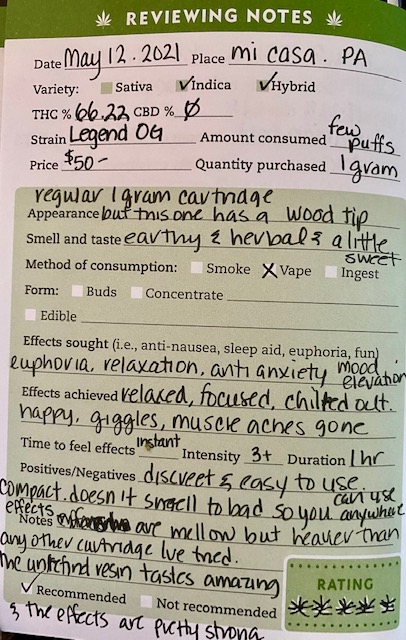 REVIEWING NOTES
Date May 12. 2021 Place mi casa. PA
Variety: Sativa ✓ Indica ✓ Hybrid
THC % 66.22 CBD % Ø
Strain Legend OG Amount consumed few puffs
Price $50- Quantity purchased 1 gram
regular 1 gram cartridge
Appearance but this one has a wood tip
Smell and taste earthy & herbal & a little sweet
Method of consumption: Smoke X Vape Ingest
Form: Buds Concentrate
Edible
Effects sought (i.e., anti-nausea, sleep aid, euphoria, fun)
euphoria, relaxation, anti anxiety mood elevation
Effects achieved relaxed, focused, chilled out.
happy, giggles, muscle aches gone
Time to feel effects instant Intensity 3+ Duration 1 hr
Positives/Negatives discreet & easy to use.
compact. doesn't smell to bad so you can use anywhere
Notes effects are mellow but heavier than
any other cartridge Ive tried.
the resin tastes amazing
✓ Recommended Not recommended
& the effects are pretty strong
RATING